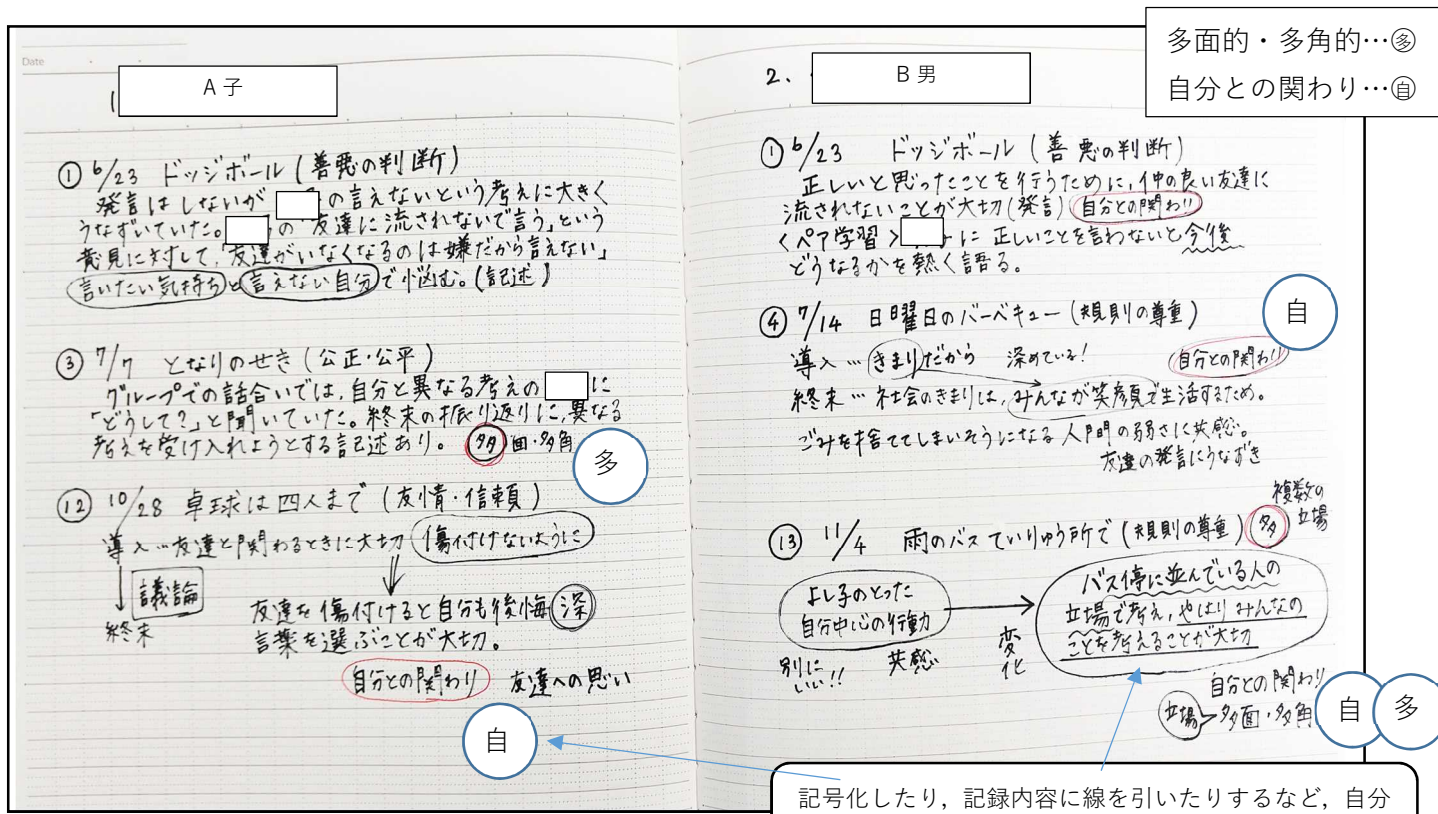 多面的・多角的…㊕多
自分との関わり…㊕自
Date
A子
1
①6/23 ドッジボール(善悪の判断)
発言はしないが の言えないという考えに大きく
うなずいていた。 の「友達に流されないで言う」という
意見に対して,「友達がいなくなるのは嫌だから言えない」
言いたい気持ちと言えない自分で悩む。(記述)
③7/7 となりのせき(公正・公平)
グループでの話合いでは,自分と異なる考えの に
「どうして?」と聞いていた。終末の振り返りに,異なる
考えを受け入れようとする記述あり。 多面・多角
多
⑫10/28 卓球は四人まで(友情・信頼)
導入…友達と関わるときに大切 傷付けないように
議論
終末
友達を傷付けると自分も後悔 深
言葉を選ぶことが大切。
自分との関わり 友達への思い
自
2.
B男
①6/23 ドッジボール(善悪の判断)
正しいと思ったことを行うために,仲の良い友達に
流されないことが大切(発言) 自分との関わり
<ペア学習> に 正しいことを言わないと今後
どうなるかを熱く語る。
④7/14 日曜日のバーベキュー(規則の尊重)
自
導入…きまりだから 深めている! 自分との関わり
終末…社会のきまりは,みんなが笑顔で生活するため。
ごみを捨ててしまいそうになる人間の弱さに共感。
友達の発言にうなずき
⑬11/4 雨のバスていりゅう所で(規則の尊重) 多 複数の
立場
よし子のとった
自分中心の行動
別に
いい!! 共感
変化
バス停に並んでいる人の
立場で考え,やはりみんなの
ことを考えることが大切
自分との関わり
立場 多面・多角
自 多
記号化したり,記録内容に線を引いたりするなど,自分